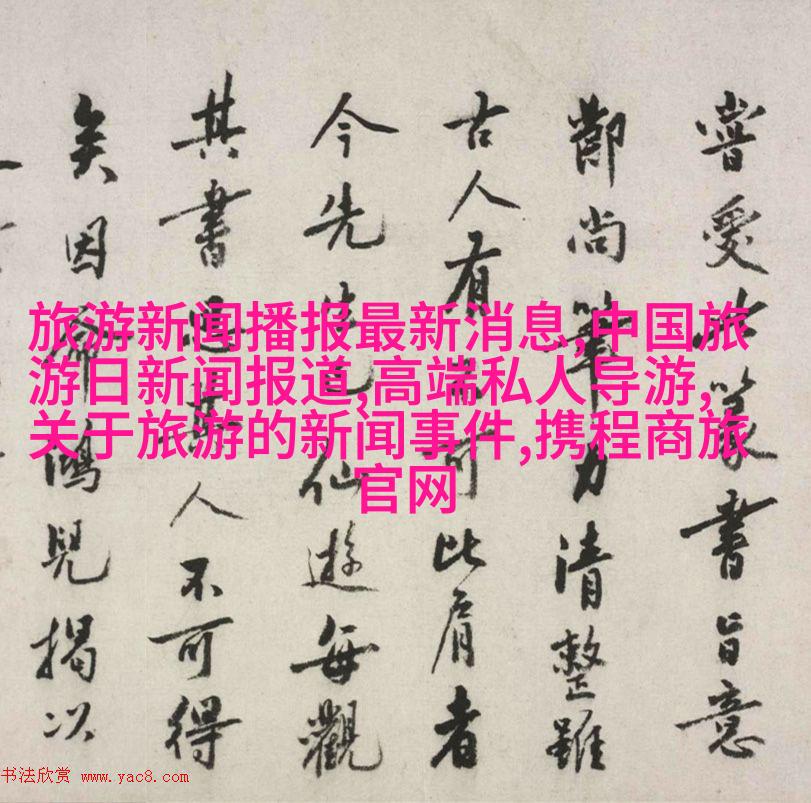 旅游新闻播报最新消息,中国旅
游日新闻报道,高端私人导游,
关于旅游的新闻事件,携程商旅
官网
嘗愛此篆書旨意
尚筆力清整雖
古人有可比肩者
今先生仙遊每觀
其書思其人不可得
矣因命鴻兒揭以
书法欣赏 www.yac8.com